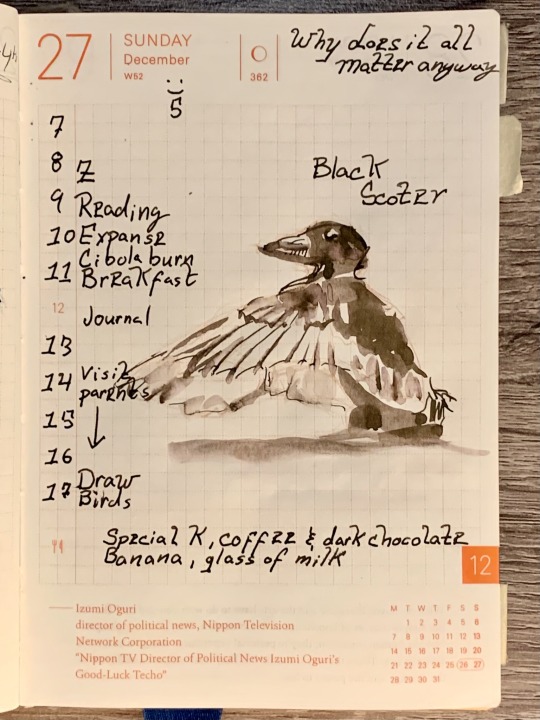 27
SUNDAY
December
W52
362
Why does it all
matter anyway
:) 
5
Black
Scoter
7
8 Z
9 Reading
10 Expanse
Cibola burn
11 Breakfast
12 Journal
13
14 Visit
parents
15
16
17 Draw
Birds
Special K, coffee & dark chocolate
Banana, glass of milk
12
Izumi Oguri
director of political news, Nippon Television
Network Corporation
"Nippon TV Director of Political News Izumi Oguri's
Good-Luck Techo"
M T W T F S S
1 2 3 4 5 6
7 8 9 10 11 12 13
14 15 16 17 18 19 20
21 22 23 24 25 26 27
28 29 30 31